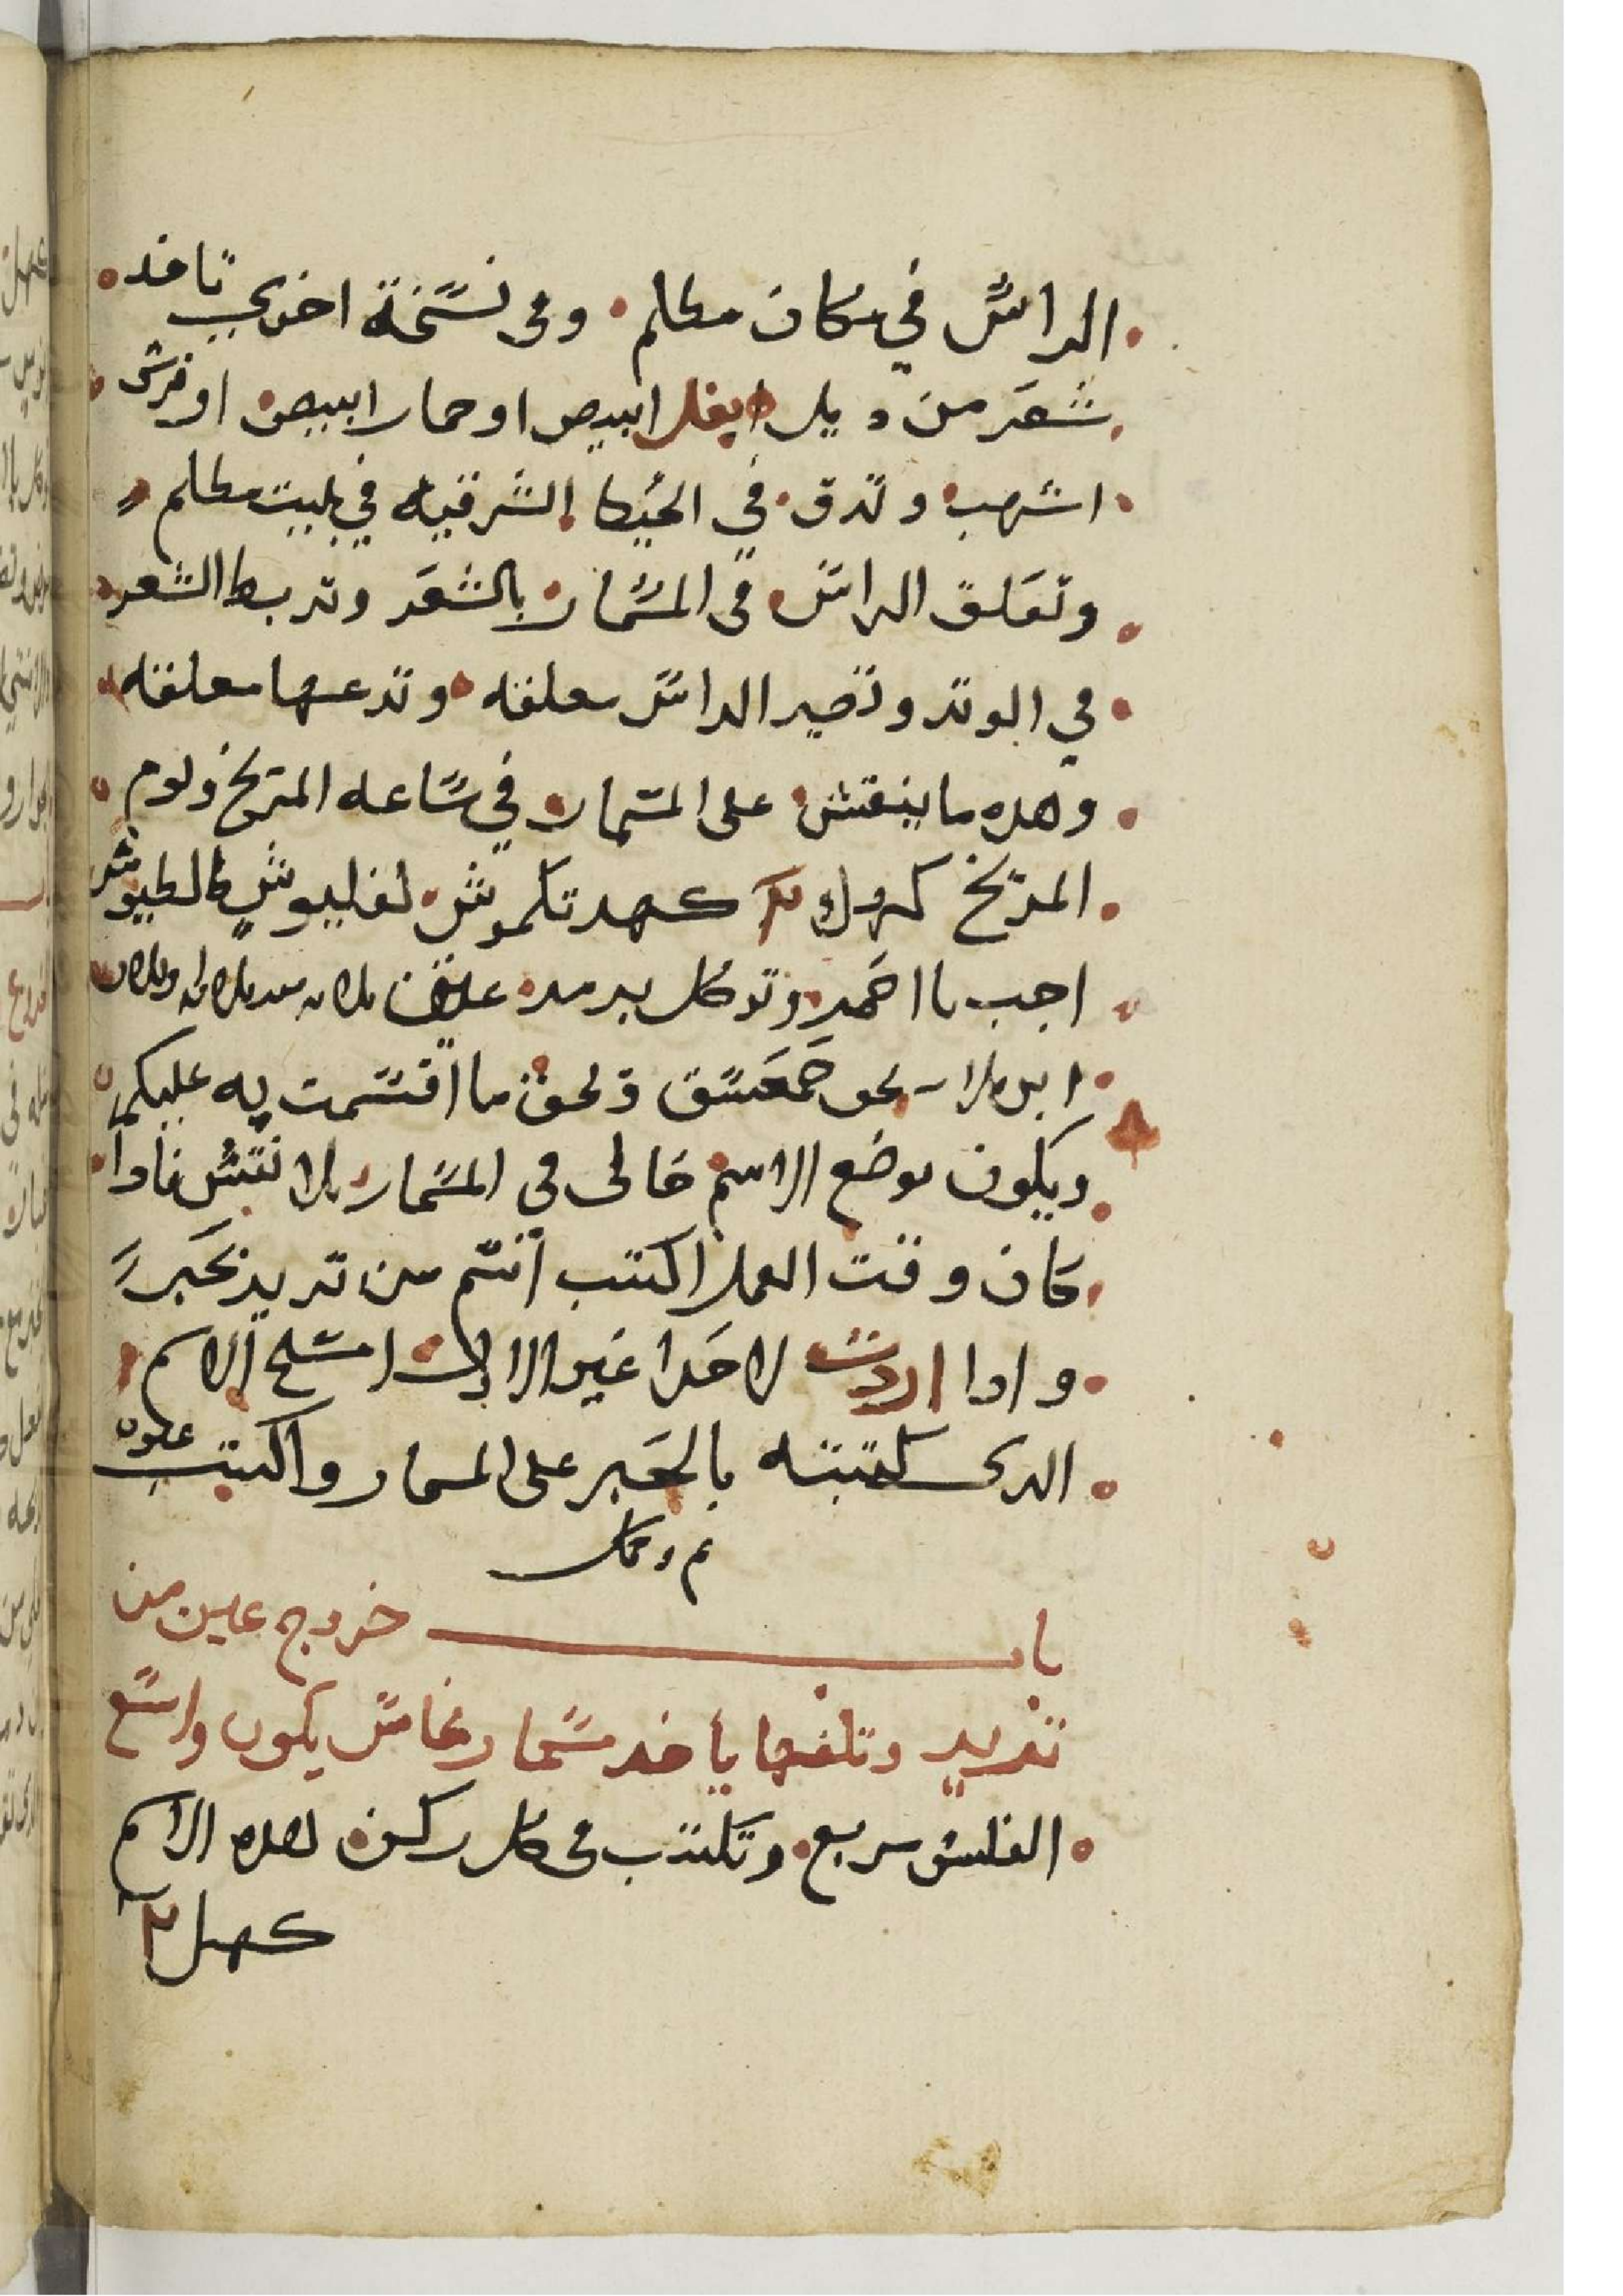 الراس في مكان مظلم وفي نسخة اخري تاخد
شعر من ديل بغل ابيص او حمار ابيص او فرش
اشهب وتدق في الحيط الشرقيه في بيت مظلم
وتعلق الراس في المسمار بالشعر وتربط الشعر
في الوتد وتصير الراس معلقه وتدعها معلقه
وهده ما ينقش على المسمار في ساعه المريخ ويوم
المريخ كهد تكموش لغليوش طالطيوش
اجب يا احمر وتوكل
بحق حمعسق وبحق ما اقسمت به عليكم
ويكون موضع الاسم خالى في المسمار بلا نقش فادا
كان وقت العمل اكتب اسم من تريد بحبر
وادا اردت لاحدا غير الاول امسح الاسم
الدى كتبته بالحبر على المسمار واكتب غيره
تم وكمل
باب خروج عين من
تريد وتلفها ياخد مسمار نحاس يكون واسع
الفلس مربع وتكتب في كل ركن هده الاسم
كهل